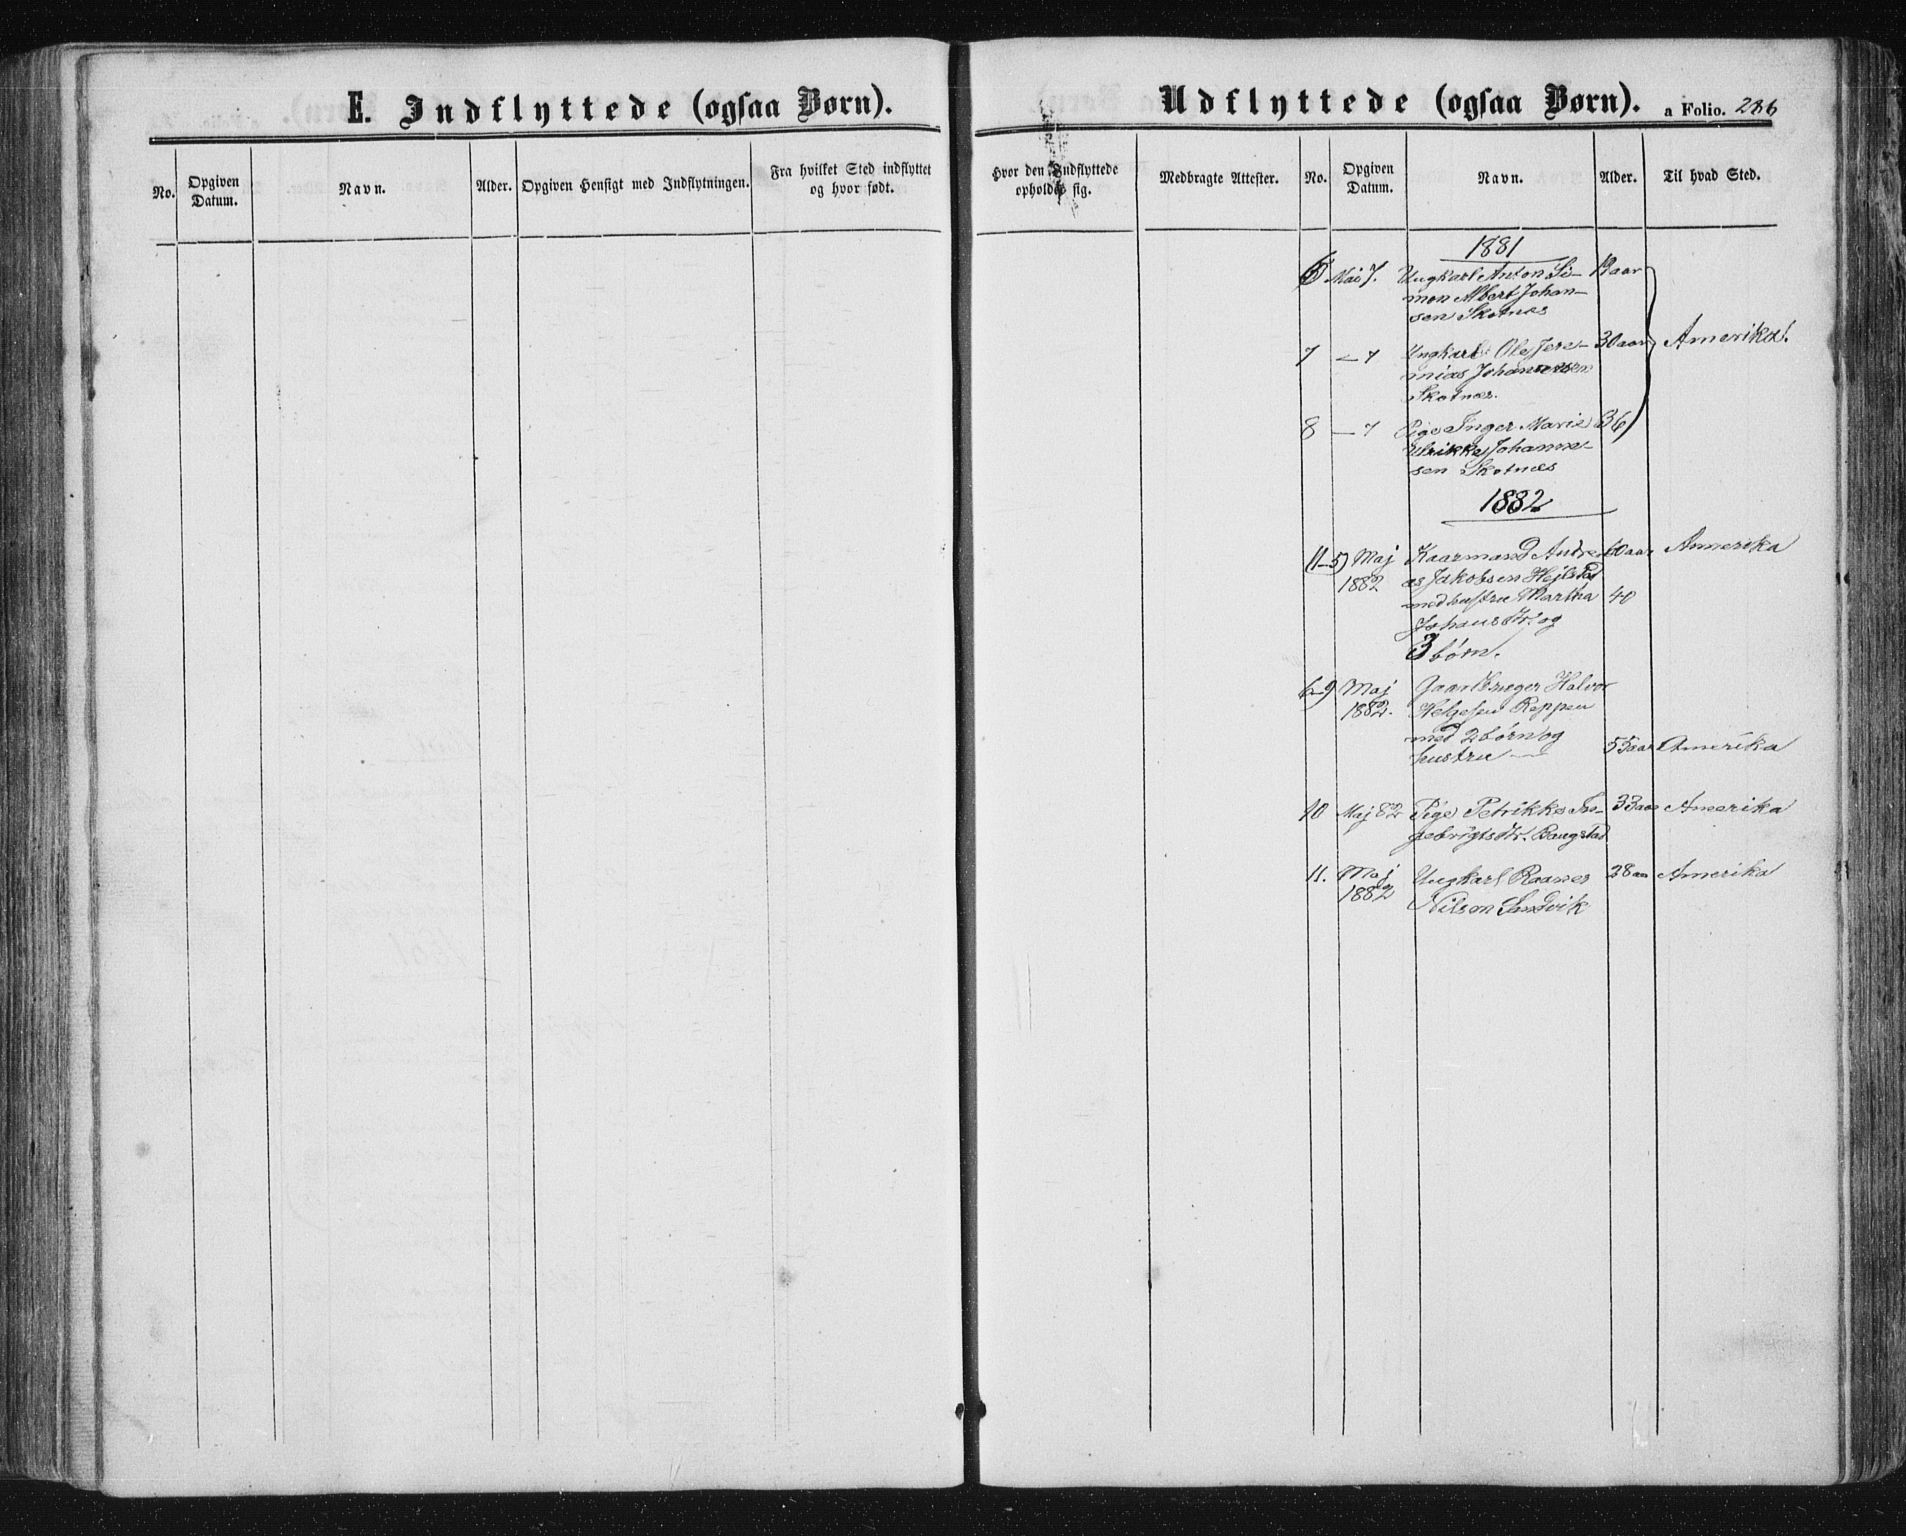 E. Indflyttede (ogsaa Børn).
No.
Opgiven
Datum.
Navn.
Alder.
Opgiven Hensigt med Indflytningen.
Fra hvilket Sted indflyttet
og hvor født.
Udflyttede (ogsaa Børn).
a Folio. 286
Hvor den Indflyttede
opholder sig.
Medbragte Attester.
No.
Opgiven
Datum.
Navn.
Alder.
Til hvad Sted.
1881
6 Mai 7. Ungkarl Anton Si- 19 aar
mon Albert Johan-
sen Skotnes
7 — 7 Ungkarl Ole Jere- 30 aar Amerika.
mias Johannesen
Skotnes.
8 — 7 Pige Inger Marie 36
Ulrikke Johanne-
sen Skotnes
1882
(1-5) Maj Kaarmand Andre- 60 aar Amerika
1882 as Jakobsen Hejlstad
med hustru Martha 40
Johansdtr. og
3 børn.
6-9) Maj Halvor
1882. Helgesen Reppen
med 2 børn og
hustru — 55 aar Amerika
10 Maj 82 Pige Petrikke In- 33 aar Amerika
gebrigtsdtr. Baugstad
11. Maj Ungkarl 28 aar Amerika
1882 Nilsen Sandvik